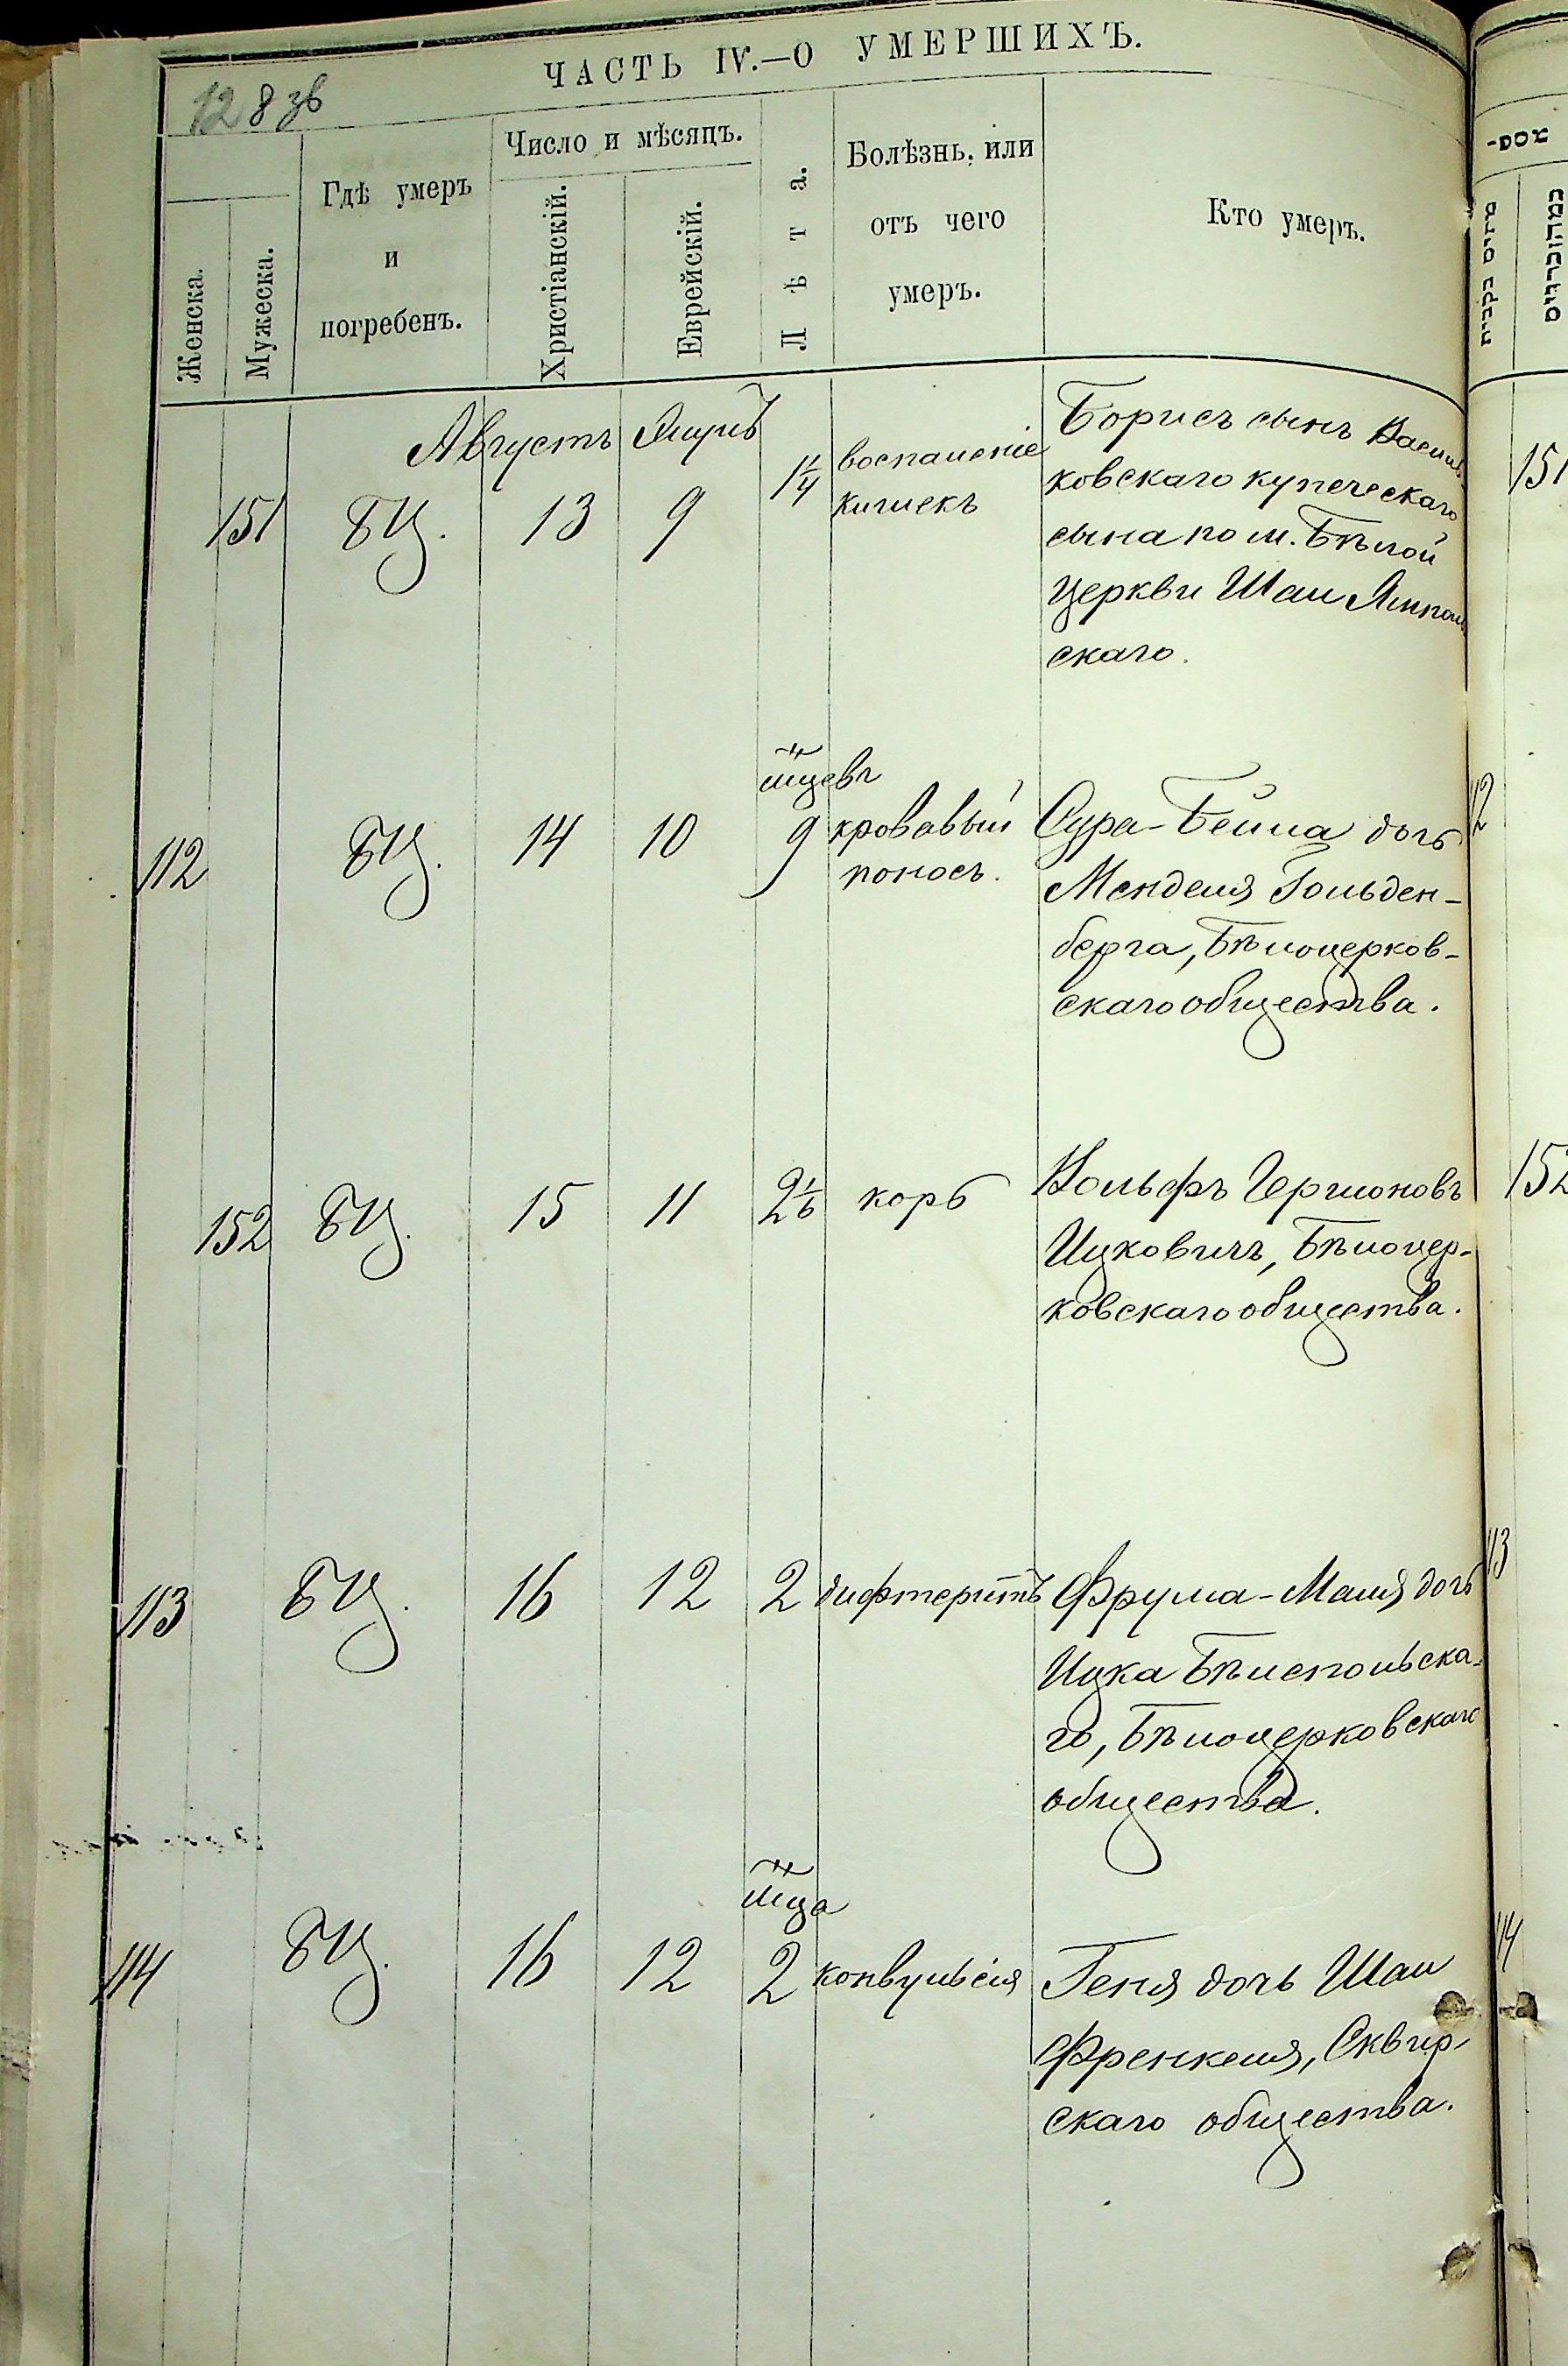 ЧАСТЬ IV.—О УМЕРШИХЪ.
128 зв
Женска.
Мужеска.
Гдѣ умеръ
и
погребенъ.
Число и мѣсяцъ.
Христіанскій.
Еврейскій.
Лѣта.
Болѣзнь, или
отъ чего
умеръ.
Кто умеръ.
Августъ
151 БЦ. 13 9 1 1/4
воспаленіе
кишекъ
Борисъ сынъ Василь
ковскаго купеческаго
сына по м. Бѣлой
Церкви Шаи Ямполь
скаго.
мцевъ
112 БЦ. 14 10 9
кровавый
поносъ.
Сура-Бейла дочь
Менделя Гольден-
берга, Бѣлоцерков-
скаго общества.
152 БЦ. 15 11 2 1/6 корь
Вольфъ Гершоновъ
Ицковичъ, Бѣлоцер-
ковскаго общества.
113 БЦ. 16 12 2 дифтеритъ
Фрума-Маля дочь
Ицка Бѣлепольска-
го, Бѣлоцерковскаго
общества.
мца
114 БЦ. 16 12 2 конвульсія
Геня дочь Шаи
Френкеля, Сквир-
скаго общества.
151
12
152
113
14